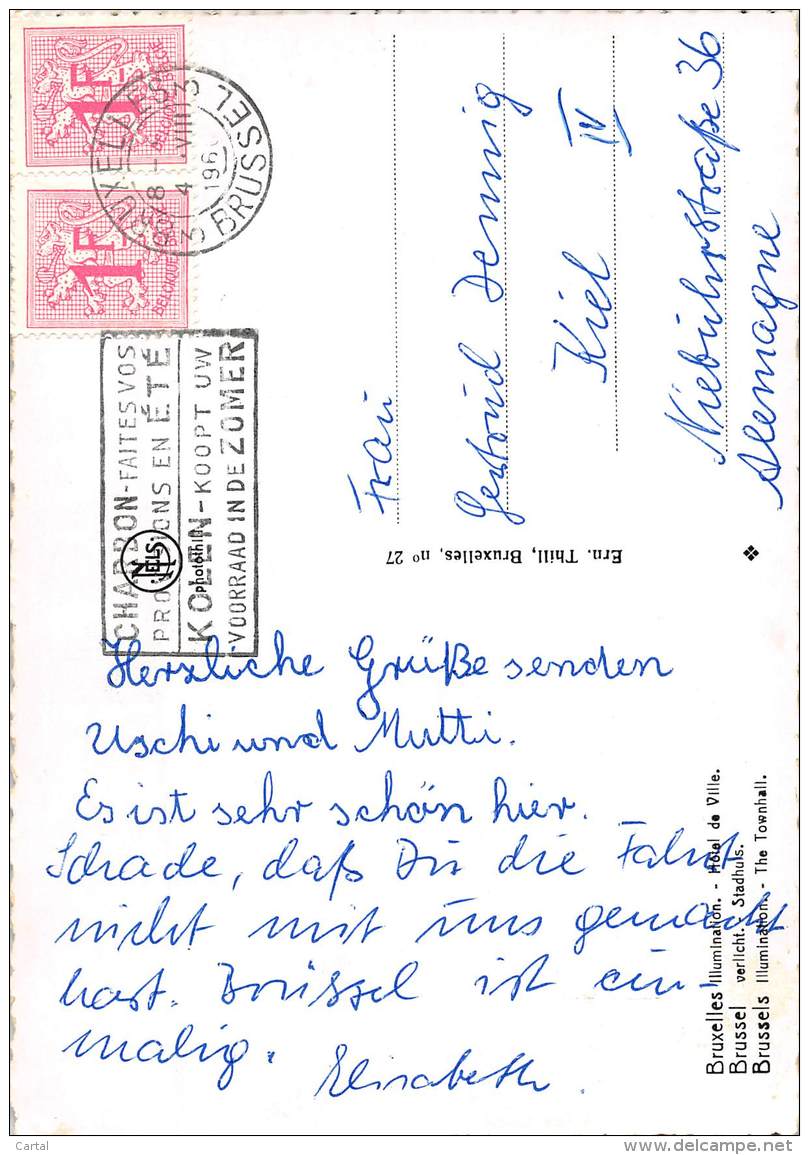 1F
BELGIQUE BELGIË
1F
BELGIQUE
BRUXELLES 3 BRUSSEL 3
18 -
4 VIII
196
CHARBON - FAITES VOS
PROVISIONS EN ÉTÉ
KOLEN - KOOPT UW
VOORRAAD IN DE ZOMER
NELS
photothill
Frau
Gertrud Denning
Kiel IV
Niebuhrstraße 36
Alemagne
Ern. Thill, Bruxelles, nº 27
Herzliche Grüße senden
Uschi und Mutti.
Es ist sehr schön hier.
Schade, daß Du die Fahrt
nicht mit uns gemacht
hast. Brüssel ist ein-
malig.
Elisabeth
Bruxelles Illumination. - Hôtel de Ville.
Brussel verlicht. Stadhuis.
Brussels Illumination. - The Townhall.
Cartal
www.delcampe.net